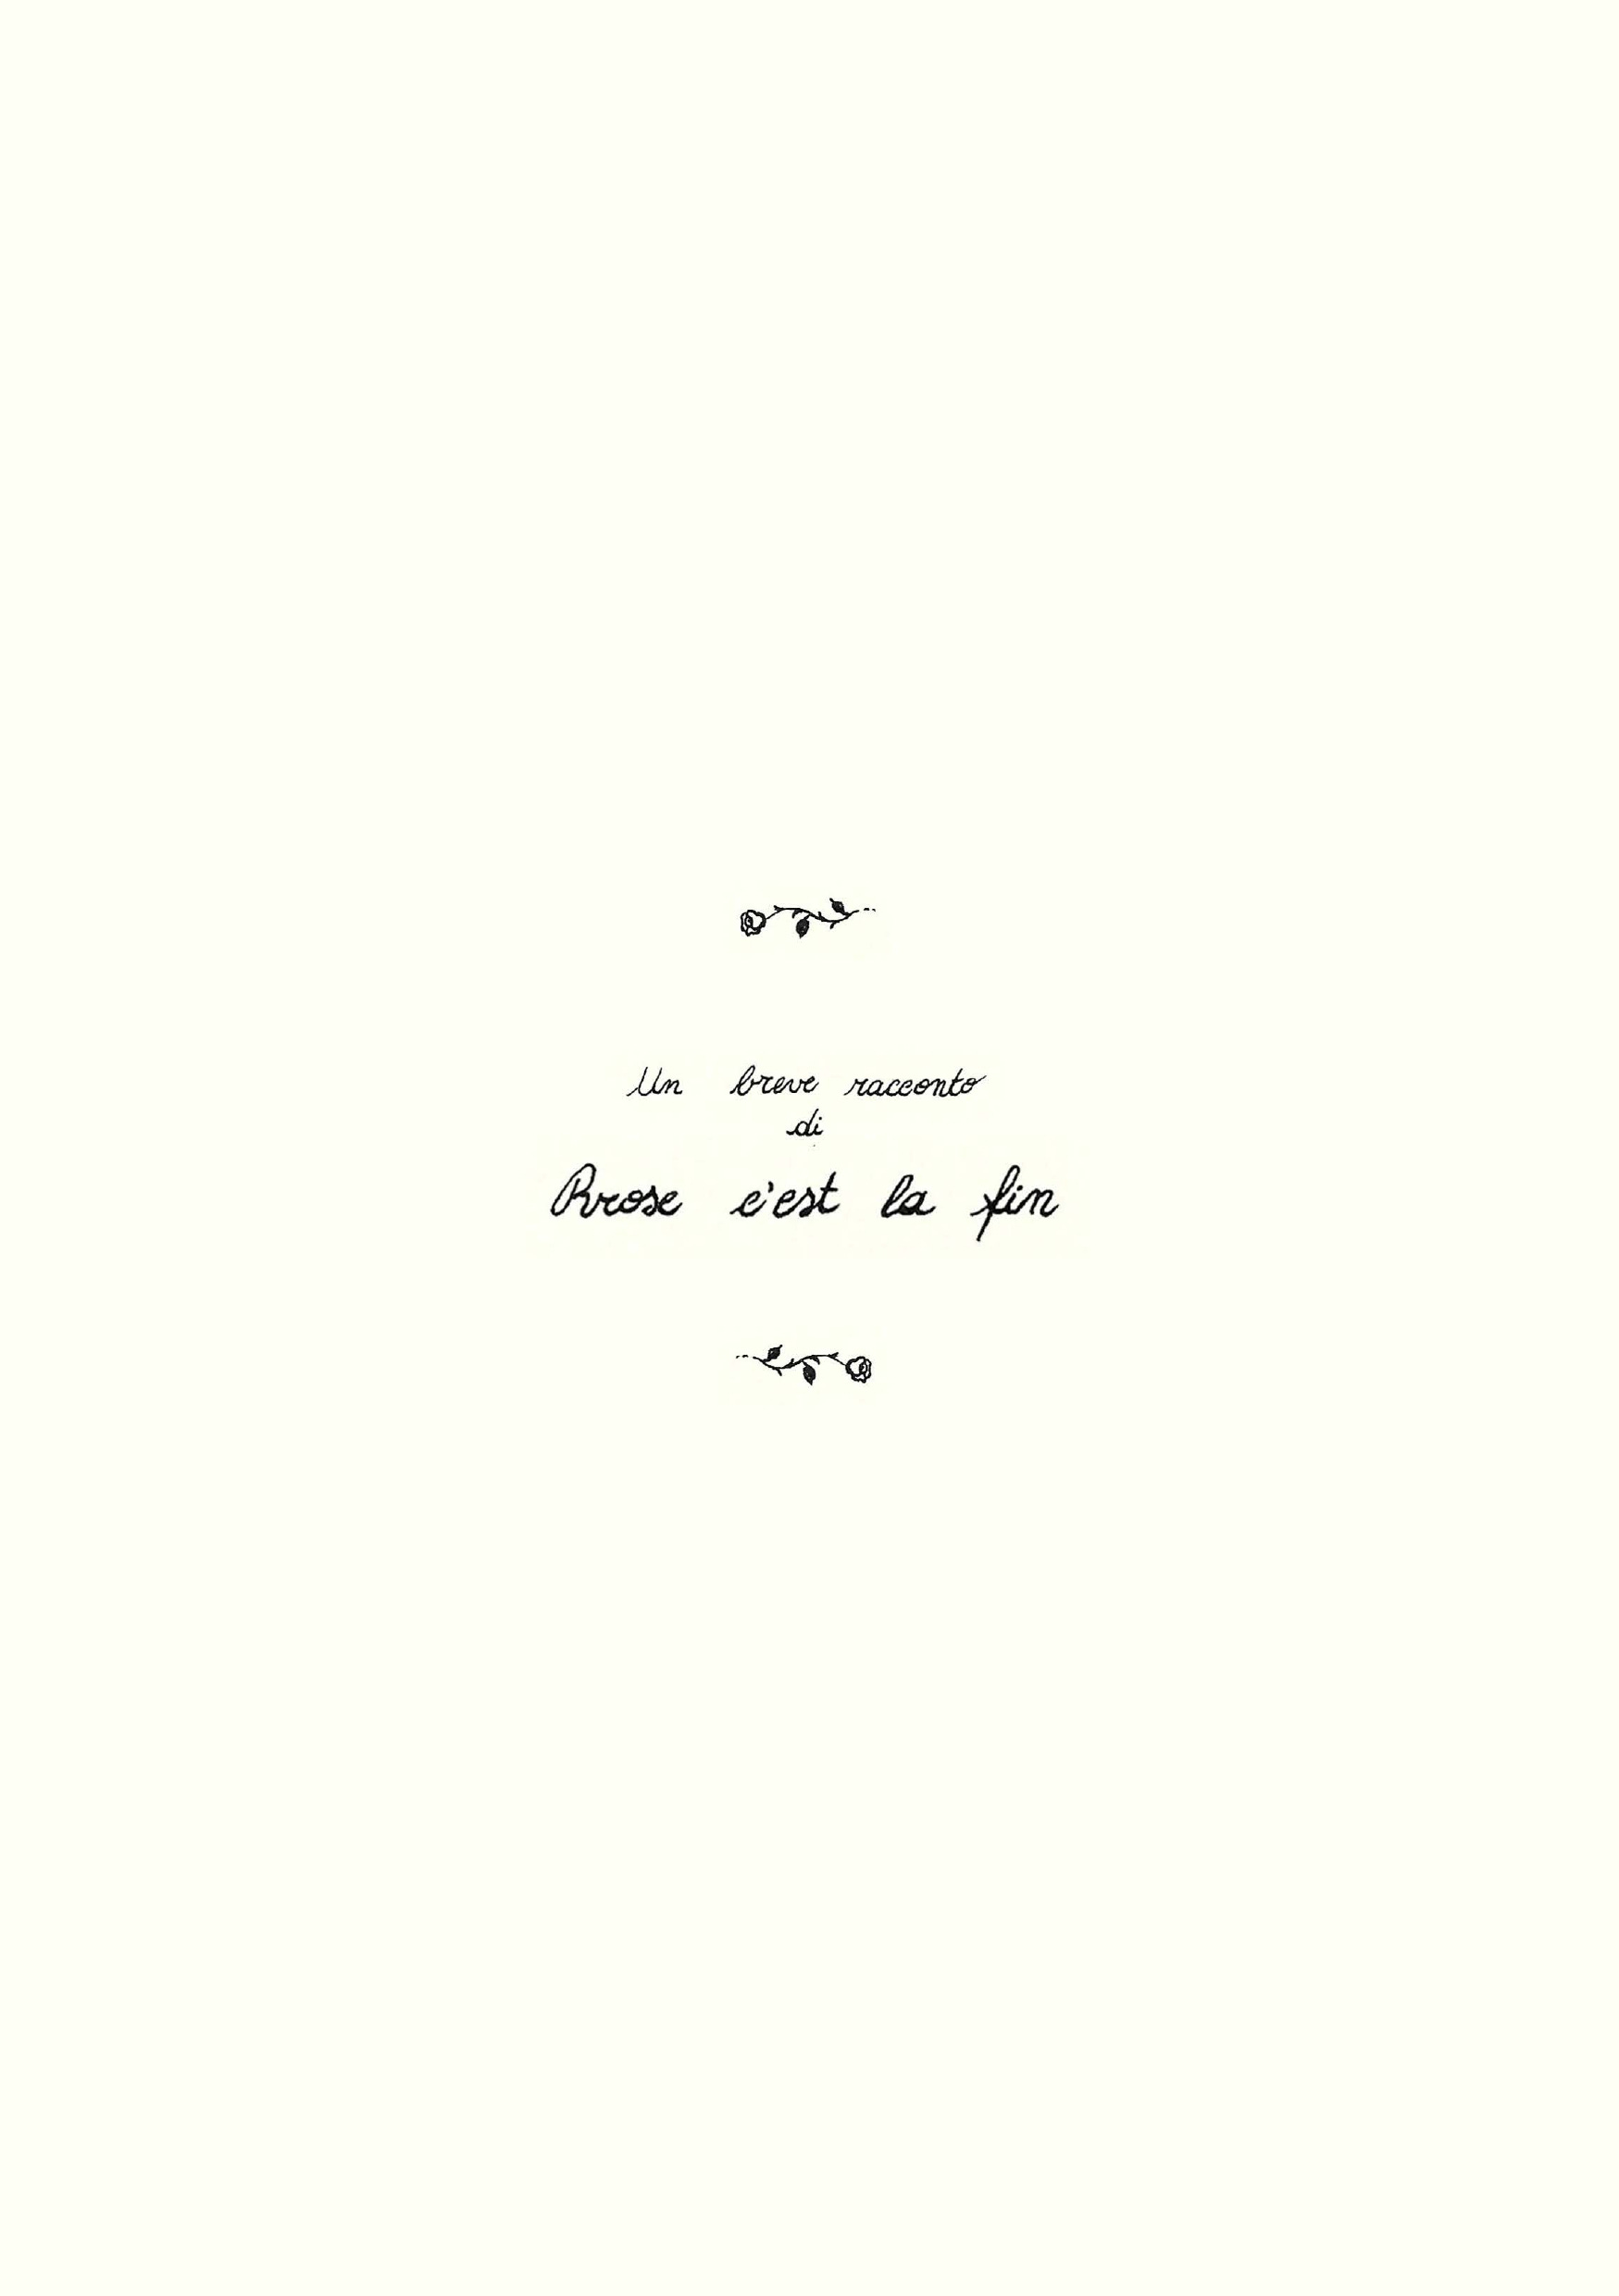 Un breve racconto
di
Rrose c'est la fin